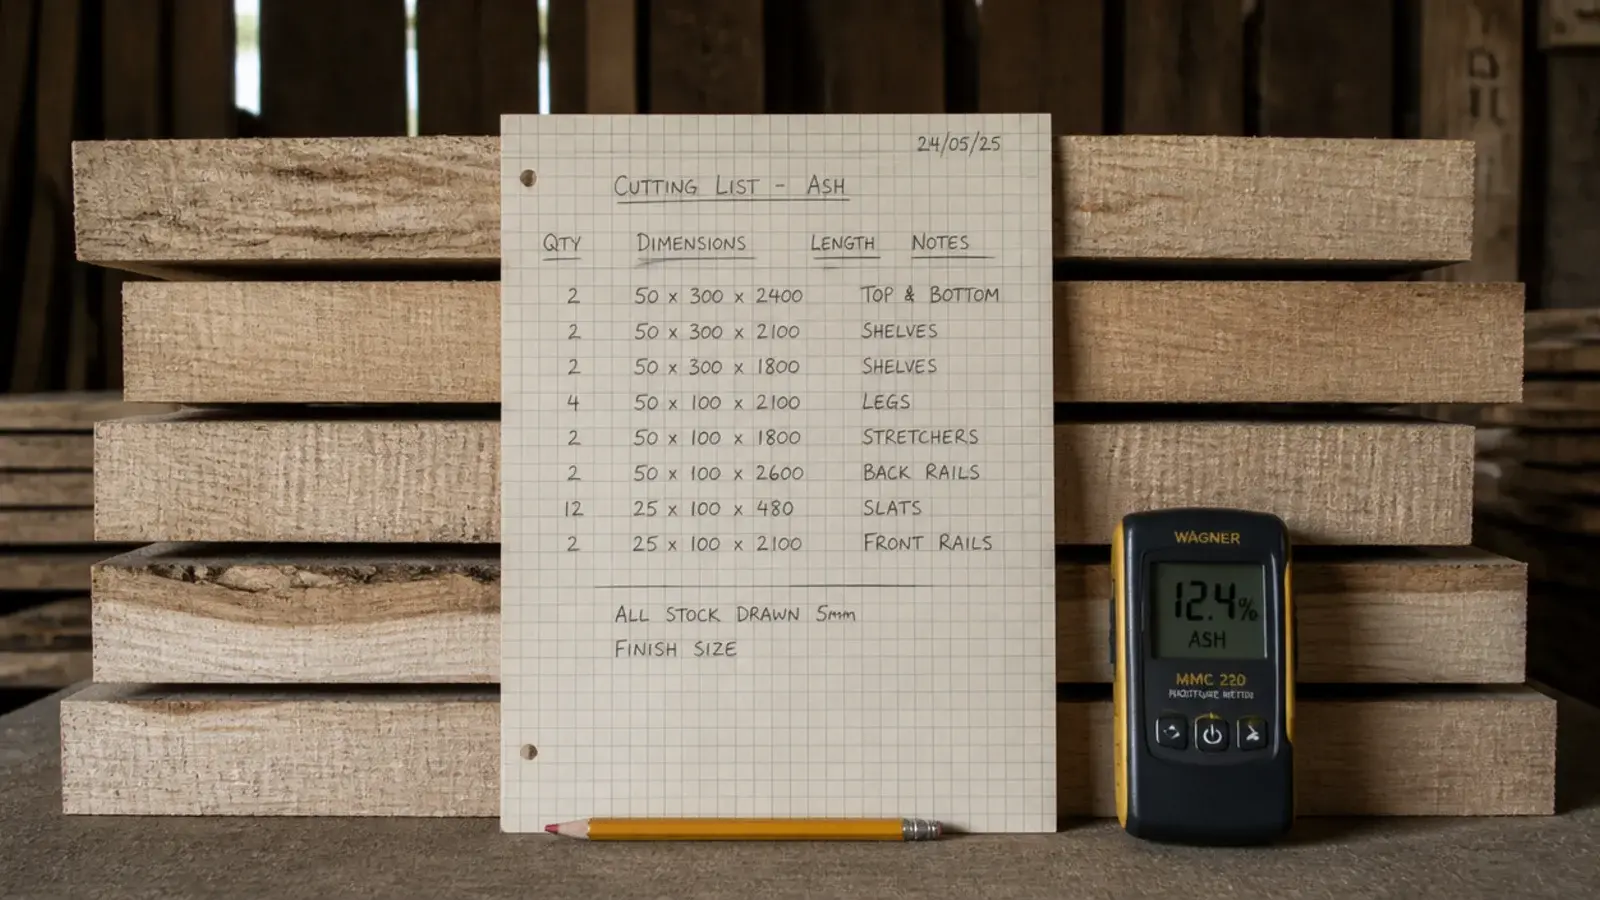 24/05/25
CUTTING LIST - ASH
QTY DIMENSIONS LENGTH NOTES
2 50 x 300 x 2400 TOP & BOTTOM
2 50 x 300 x 2100 SHELVES
2 50 x 300 x 1800 SHELVES
4 50 x 100 x 2100 LEGS
2 50 x 100 x 1800 STRETCHERS
2 50 x 100 x 2600 BACK RAILS
12 25 x 100 x 480 SLATS
2 25 x 100 x 2100 FRONT RAILS
ALL STOCK DRAWN 5mm
FINISH SIZE
WAGNER
12.4%
ASH
MMC 220